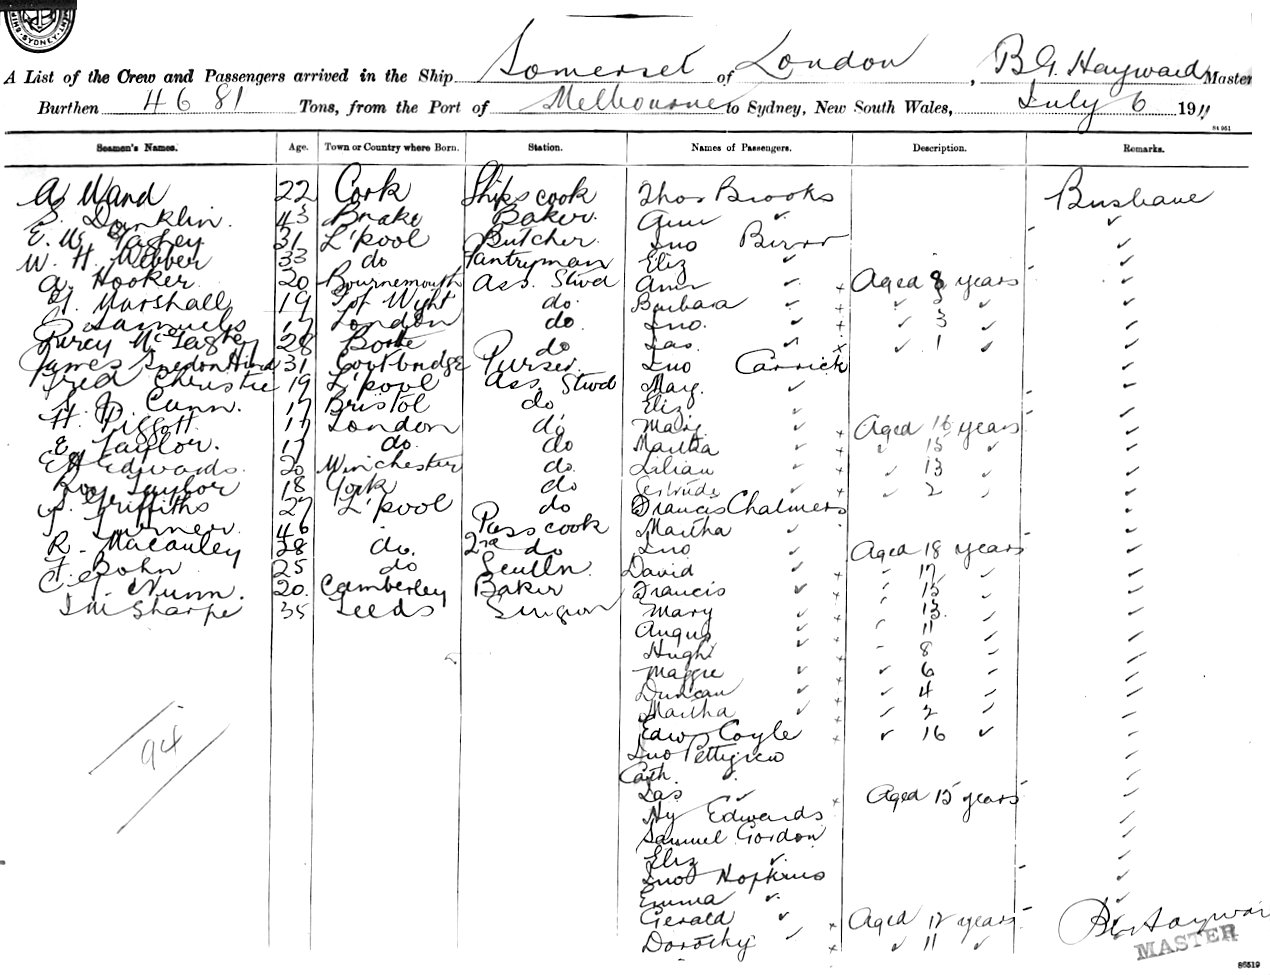 A List of the Crew and Passengers arrived in the Ship Somerset of London, B G Hayward Master
Burthen 4681 Tons, from the Port of Melbourne to Sydney, New South Wales, July 6 1911
84 951
Seamen's Names. Age. Town or Country where Born. Station. Names of Passengers. Description. Remarks.
A Wand 22 Cork Ships cook Thos Brooks Brisbane
S. Donklin 43 Brake Baker Ann ✓
E. W. 31 L'pool Butcher Jno
W. H. Webber 33 do Pantryman Eliz ✓
A. Hooker 20 Bournemouth Ass. Stwd Ann ✓ Aged 8 years
Marshall 19 I of Wight do Barbara ✓
Samuels 17 London do Jno. ✓ 3
Percy 28 Bootle do Jas. ✓ 1
James 31 Coatbridge Purser Jno Carrick
Fred Christie 19 L'pool Ass. Stwd Mary ✓
Cann. 17 Bristol do Eliz ✓
H. Piggott 17 London do Mary Aged 16 years
E Taylor. 17 do. do Martha 15
E H Edwards 20 Winchester do. Lilian 13
Roy Taylor 18 York do Gertrude 2
Griffiths 27 L'pool do Francis Chalmers
Turner 46 Pass cook Martha ✓
R. Macauley 28 do. 2nd do Jno Aged 18 years
F. Bohn 25 do Sculln. David 17
Nunn. 20. Camberley Baker Francis 15
Sharpe 35 Leeds Surgeon Mary 13
Angus 11
Hugh 8
Maggie 6
Duncan 4
Martha 2
Edw Coyle 16
94
Jno Pettigrew
Cath. ✓
Jas ✓ Aged 15 years
Hy Edwards
Samuel Gordon
Eliz ✓
Jno Hopkins
Emma ✓
Gerald ✓ Aged 12 years
Dorothy ✓ 11
B G Haywar
MASTER
86519